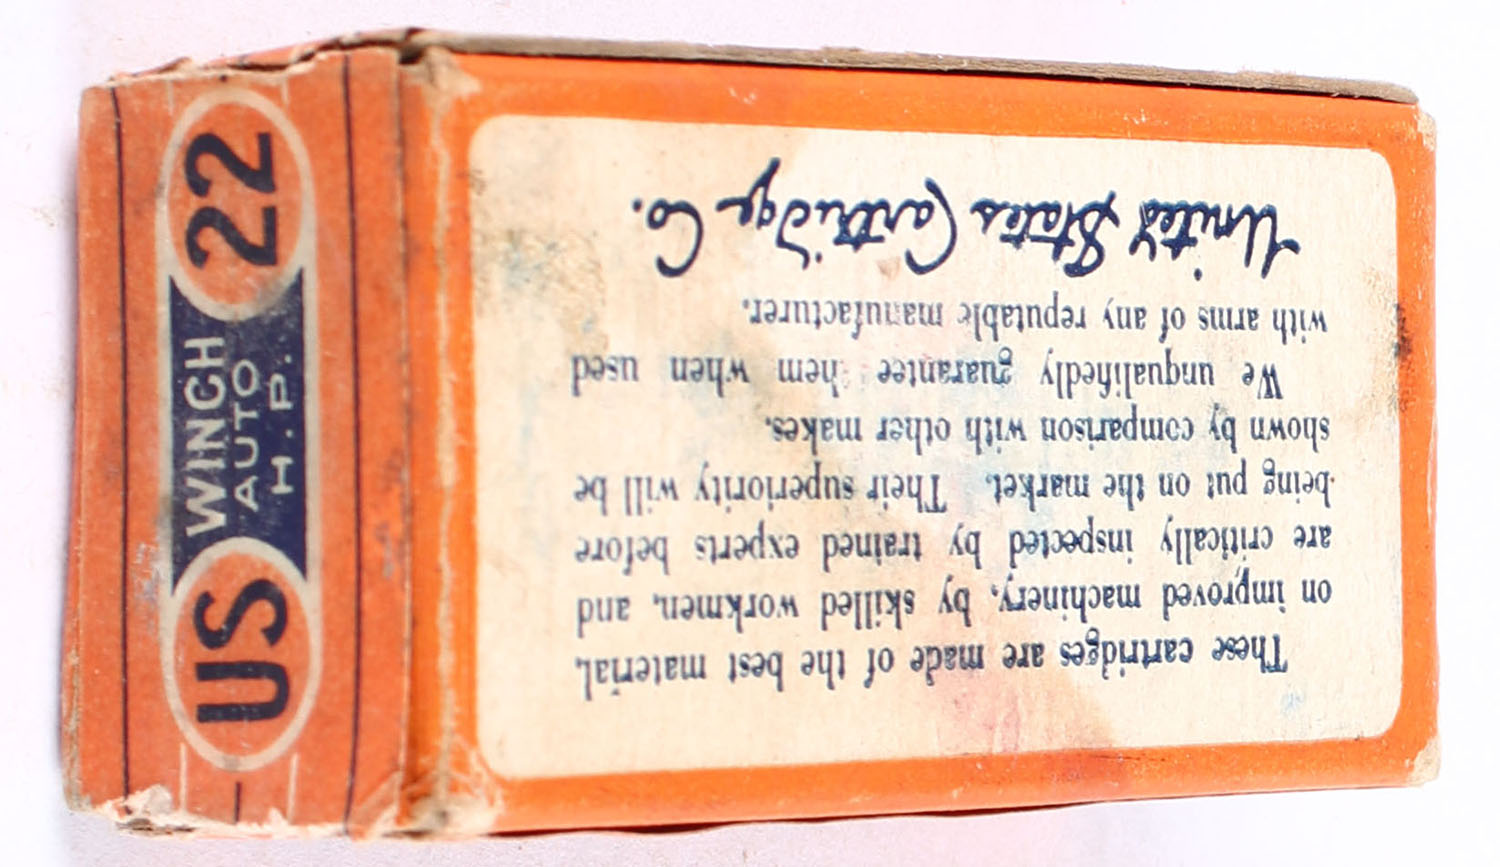 US
WINCH
AUTO
H.P.
22
These cartridges are made of the best material,
on improved machinery, by skilled workmen, and
are critically inspected by trained experts before
being put on the market. Their superiority will be
shown by comparison with other makes.
We unqualifiedly guarantee them when used
with arms of any reputable manufacturer.
United States Cartridge Co.